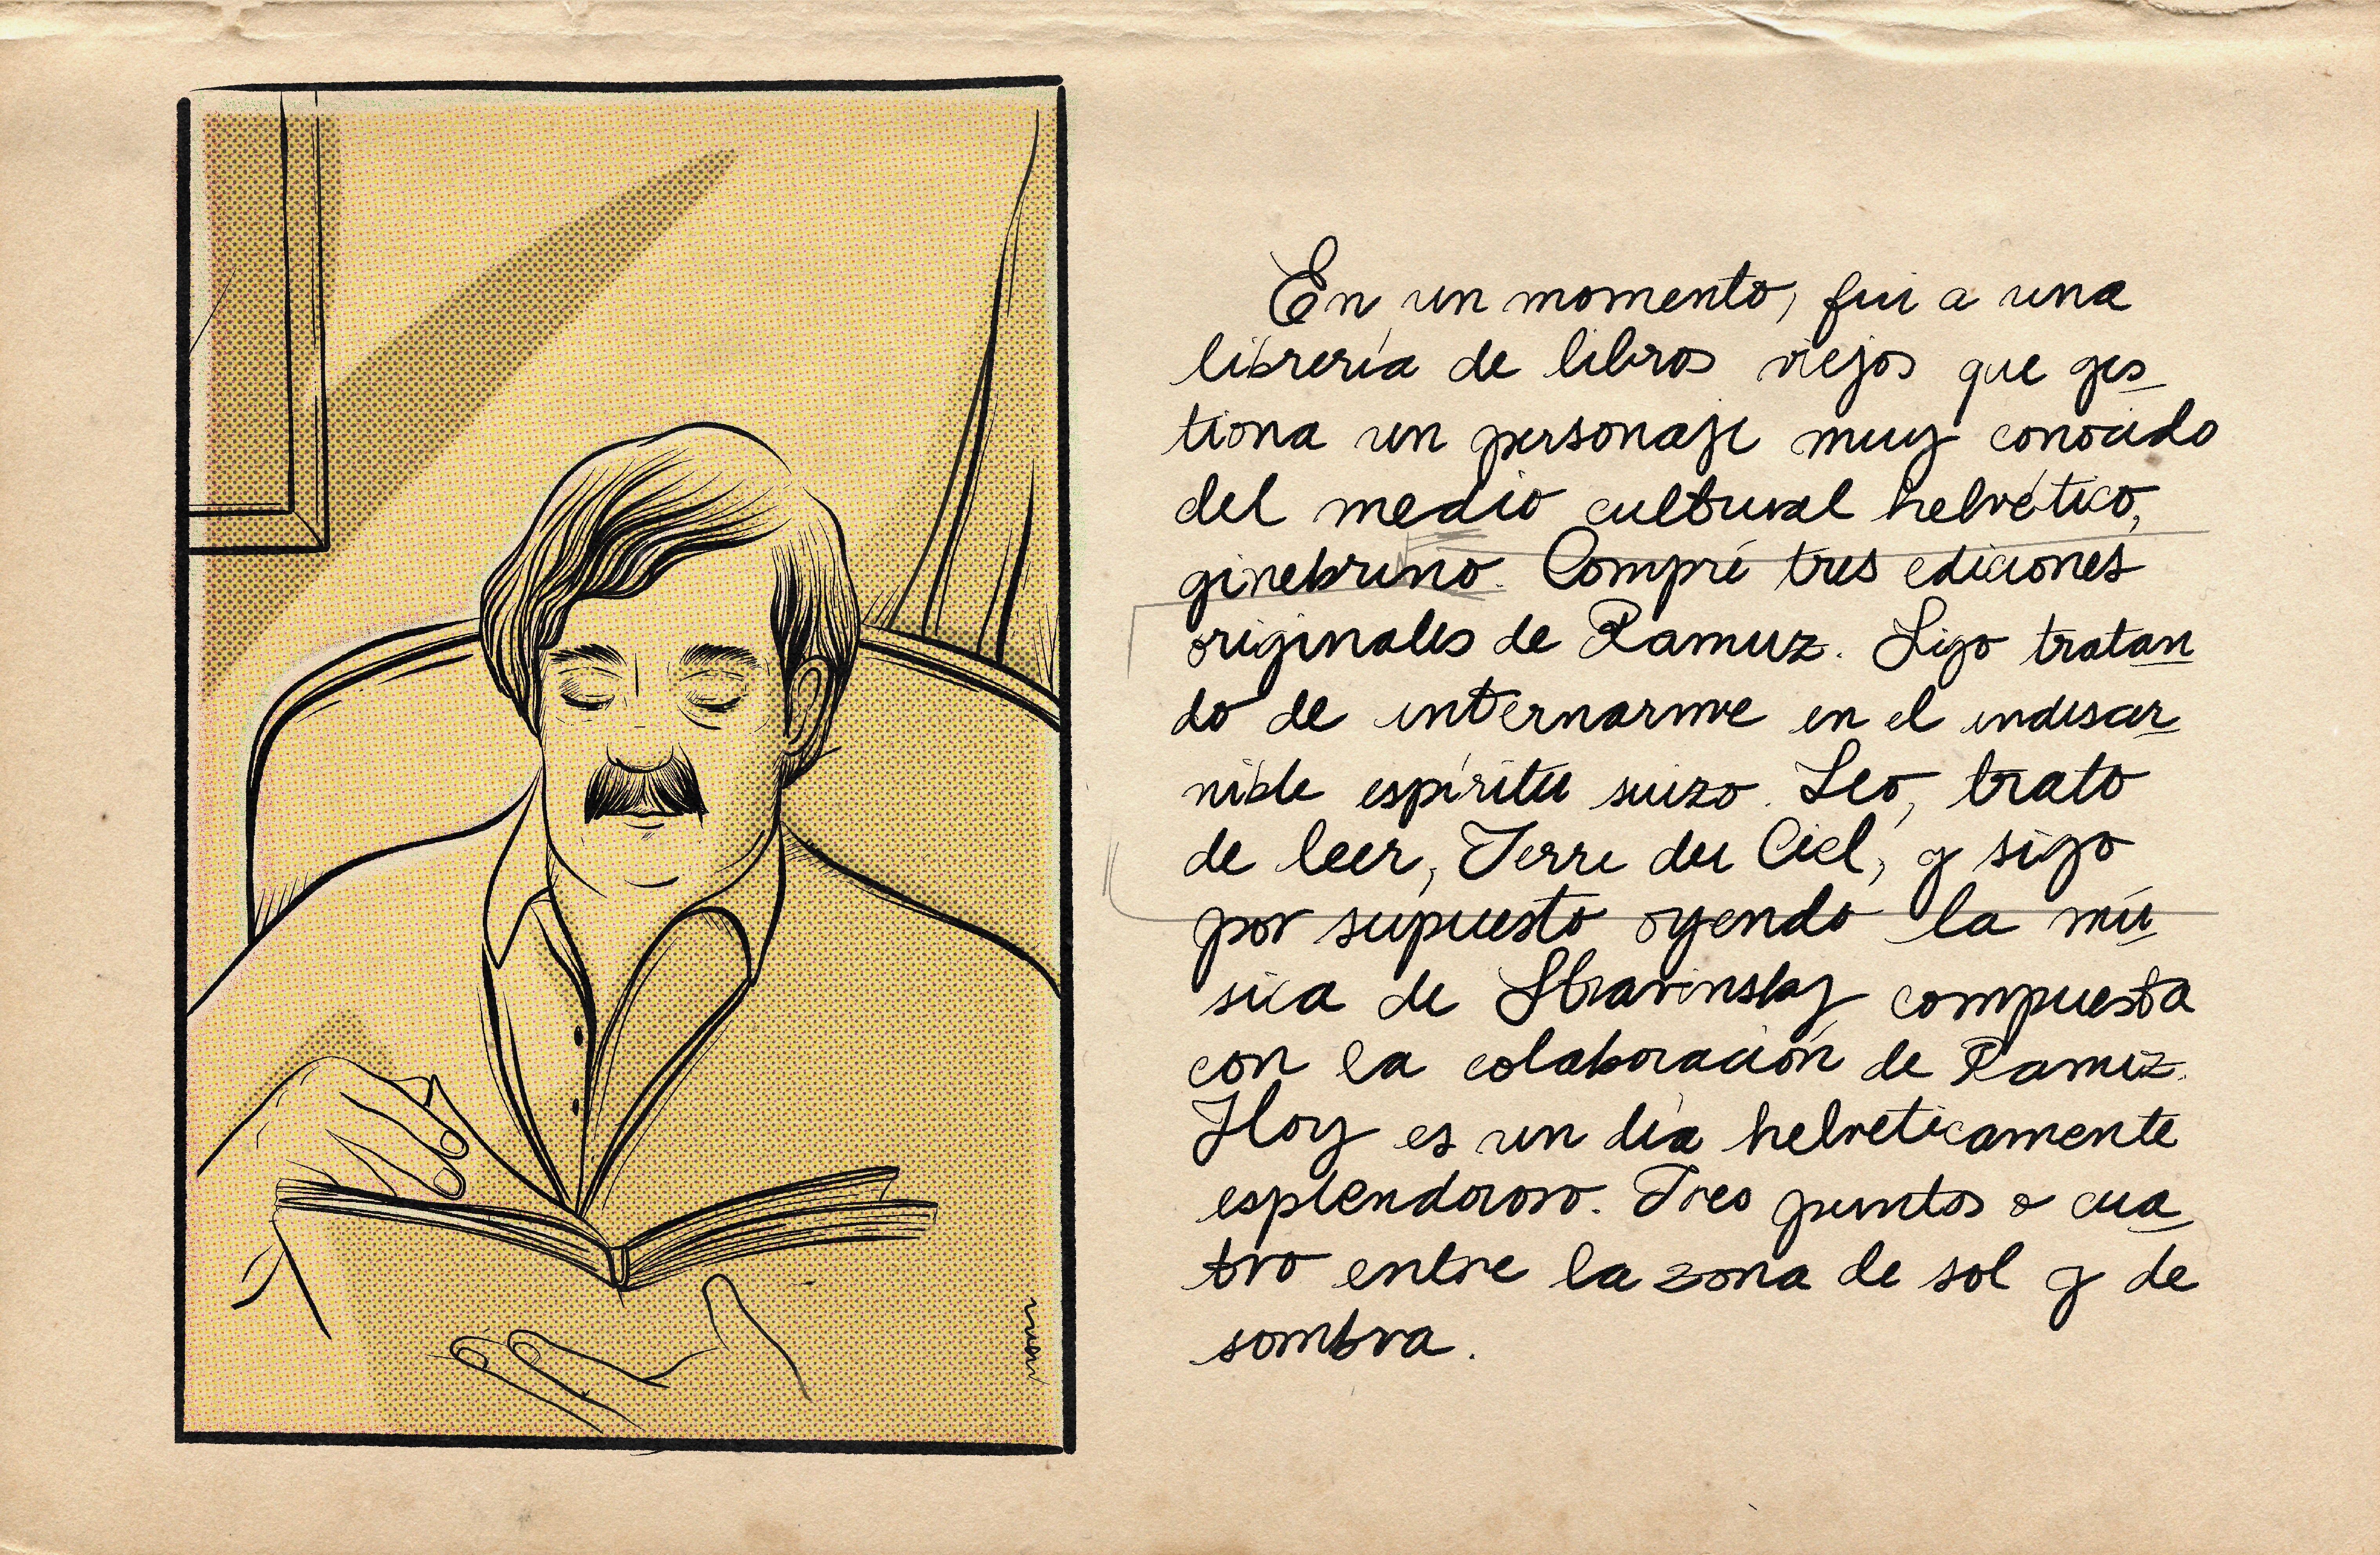 En un momento, fui a una
librería de libros viejos que ges_
tiona un personaje muy conocido
del medio cultural helvético,
ginebrino. Compré tres ediciones
originales de Ramuz. Sigo tratan_
do de internarme en el indiscer_
nible espíritu suizo. Leo, trato
de leer, Terre du Ciel, y sigo
por supuesto oyendo la mú_
sica de Stravinsky compuesta
con la colaboración de Ramuz.
Hoy es un día helveticamente
esplendoroso. Tres puntos o cua_
tro entre la zona de sol y de
sombra.